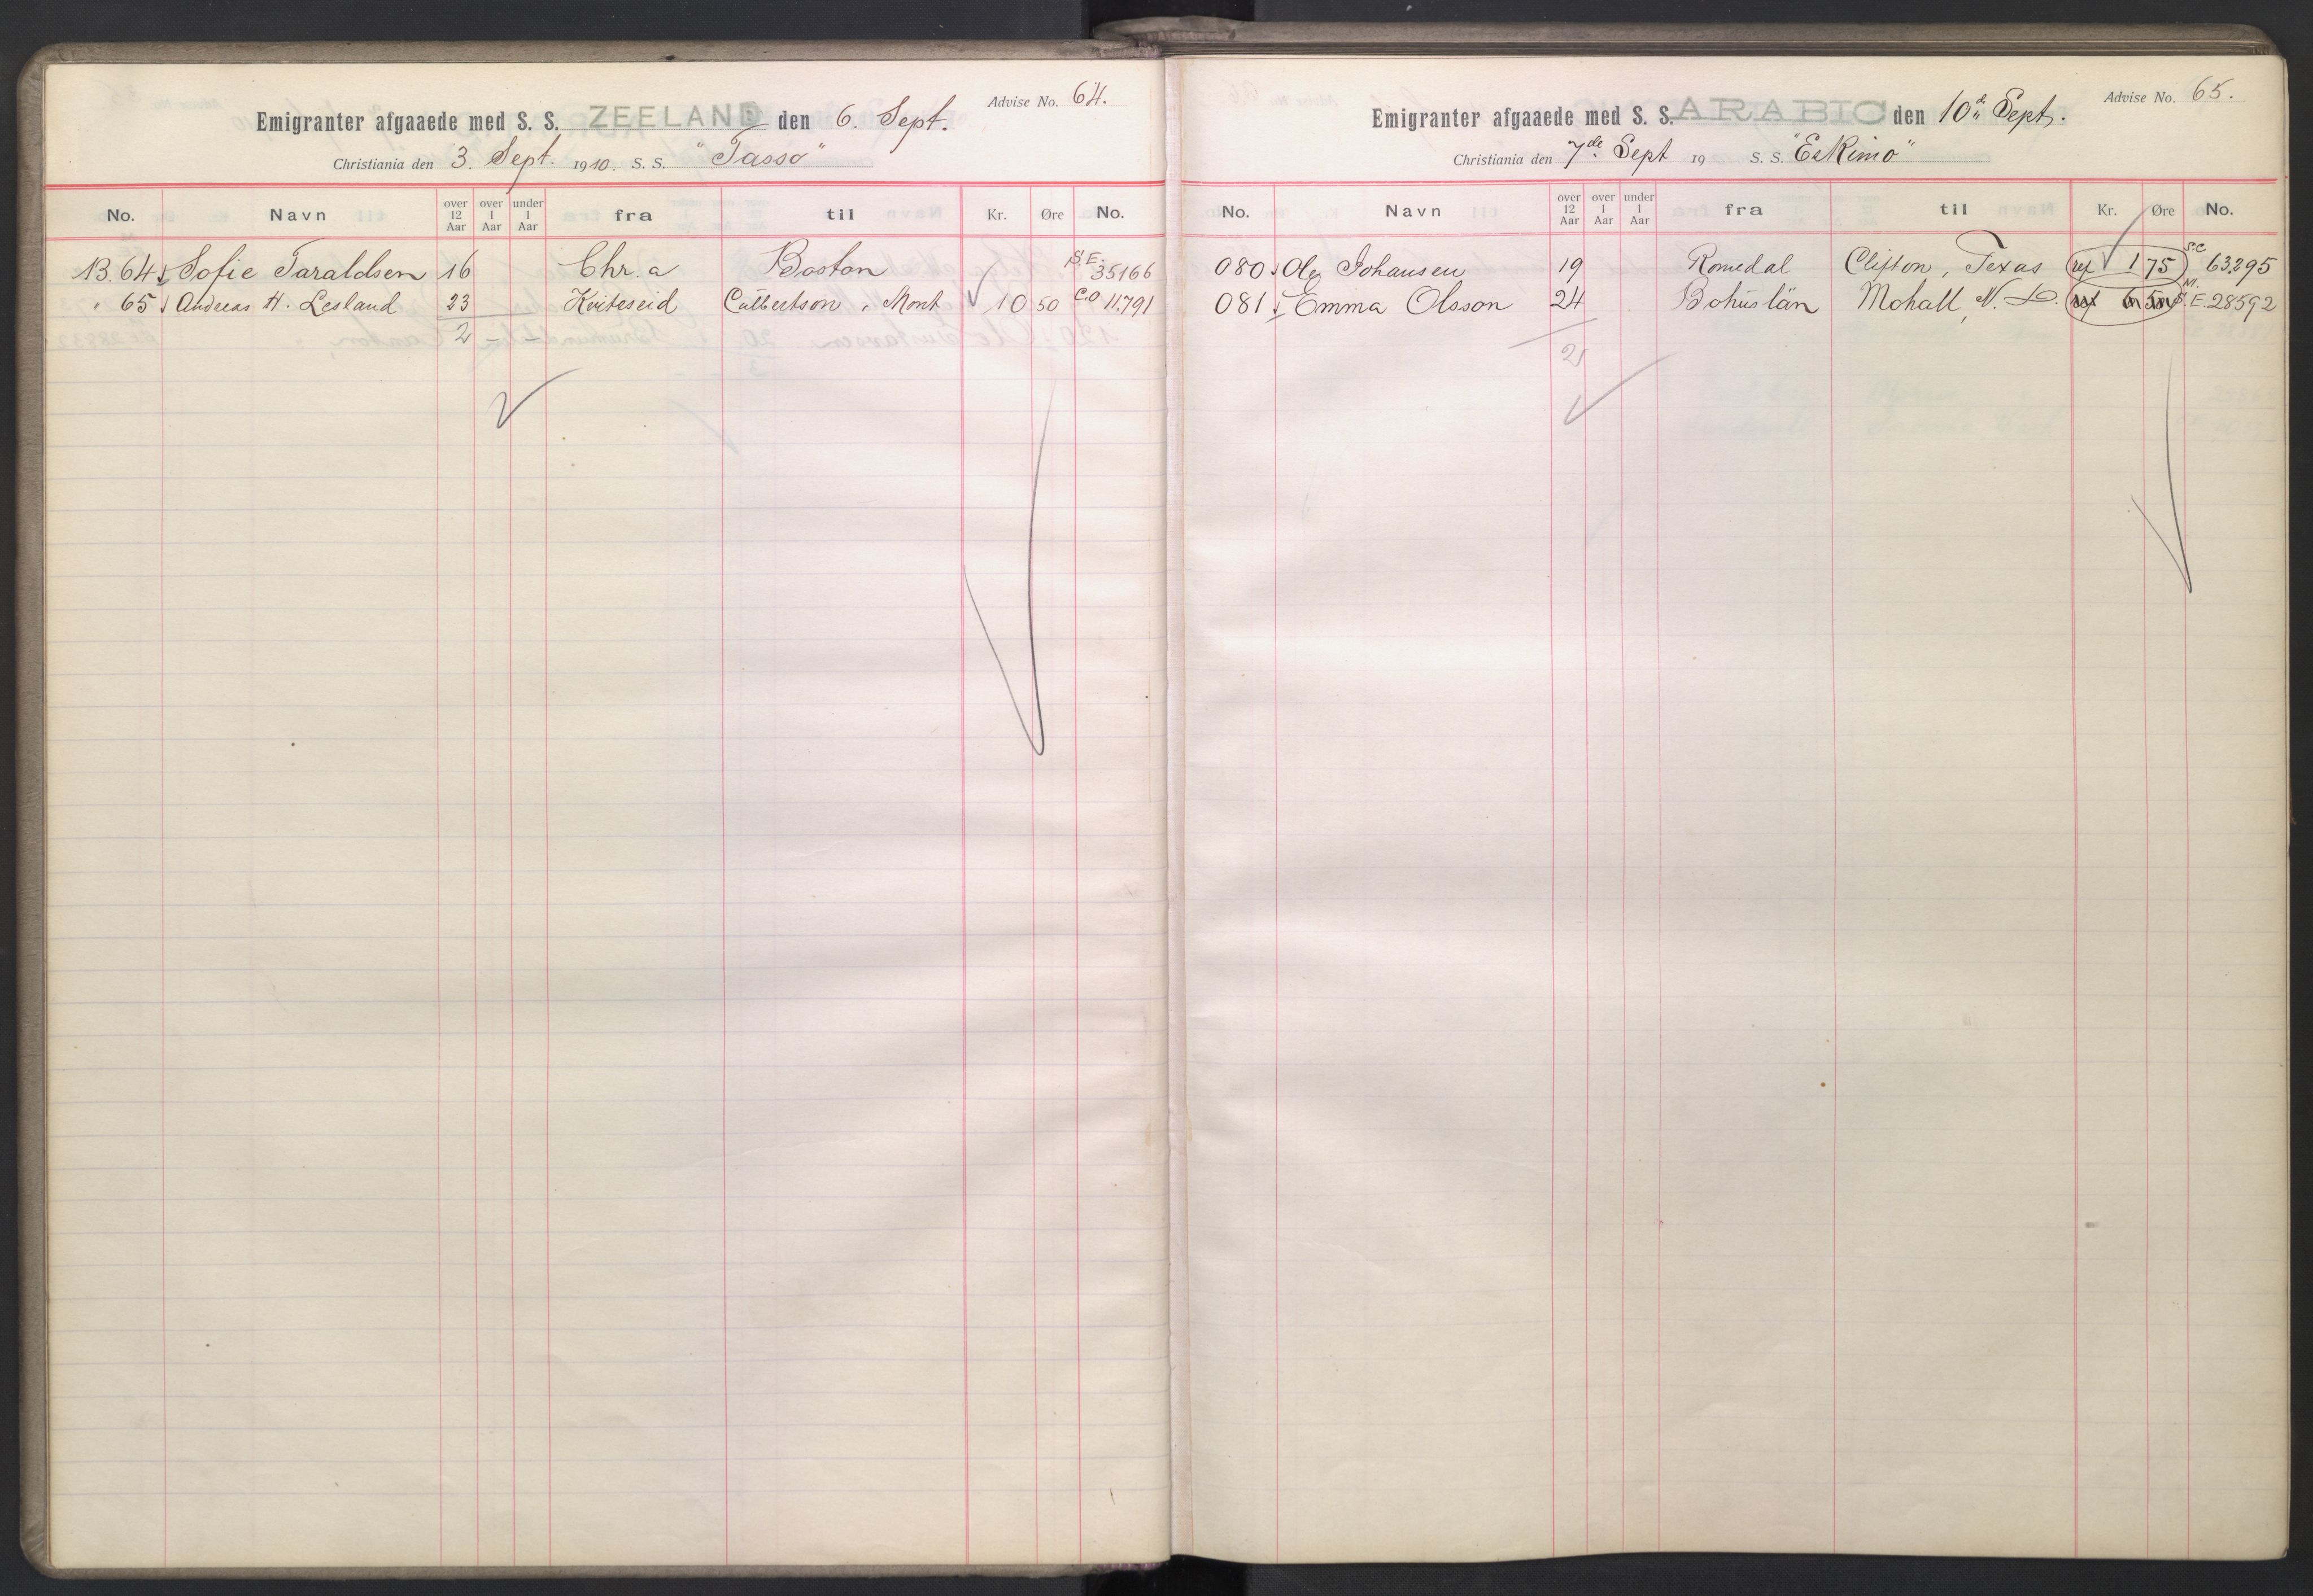 Advise No. 64.
Emigranter afgaaede med S. S. ZEELAND den 6. Sept.
Christiania den 3. Sept. 1910. S. S. "Tasso"
No. Navn over 12 Aar over 1 Aar under 1 Aar fra til Kr. Øre No.
13.64 Sofie Taraldsen 16 Chr.a Boston S.E. 35166
" 65 Andreas H. Lesland 23 Kviteseid Culbertson, Mont 10 50 C.O 11.791
2 - -
Advise No. 65.
Emigranter afgaaede med S. S. ARABIC den 10d Sept.
Christiania den 7de Sept 19 S. S. "Eskimo"
No. Navn over 12 Aar over 1 Aar under 1 Aar fra til Kr. Øre No.
080 Ole Johansen 19 Romedal Clifton, Texas ref 1 75 S.C 63.295
081 Emma Olsson 24 Bohuslän Mohall, N. D. ref S.E. 28592
2